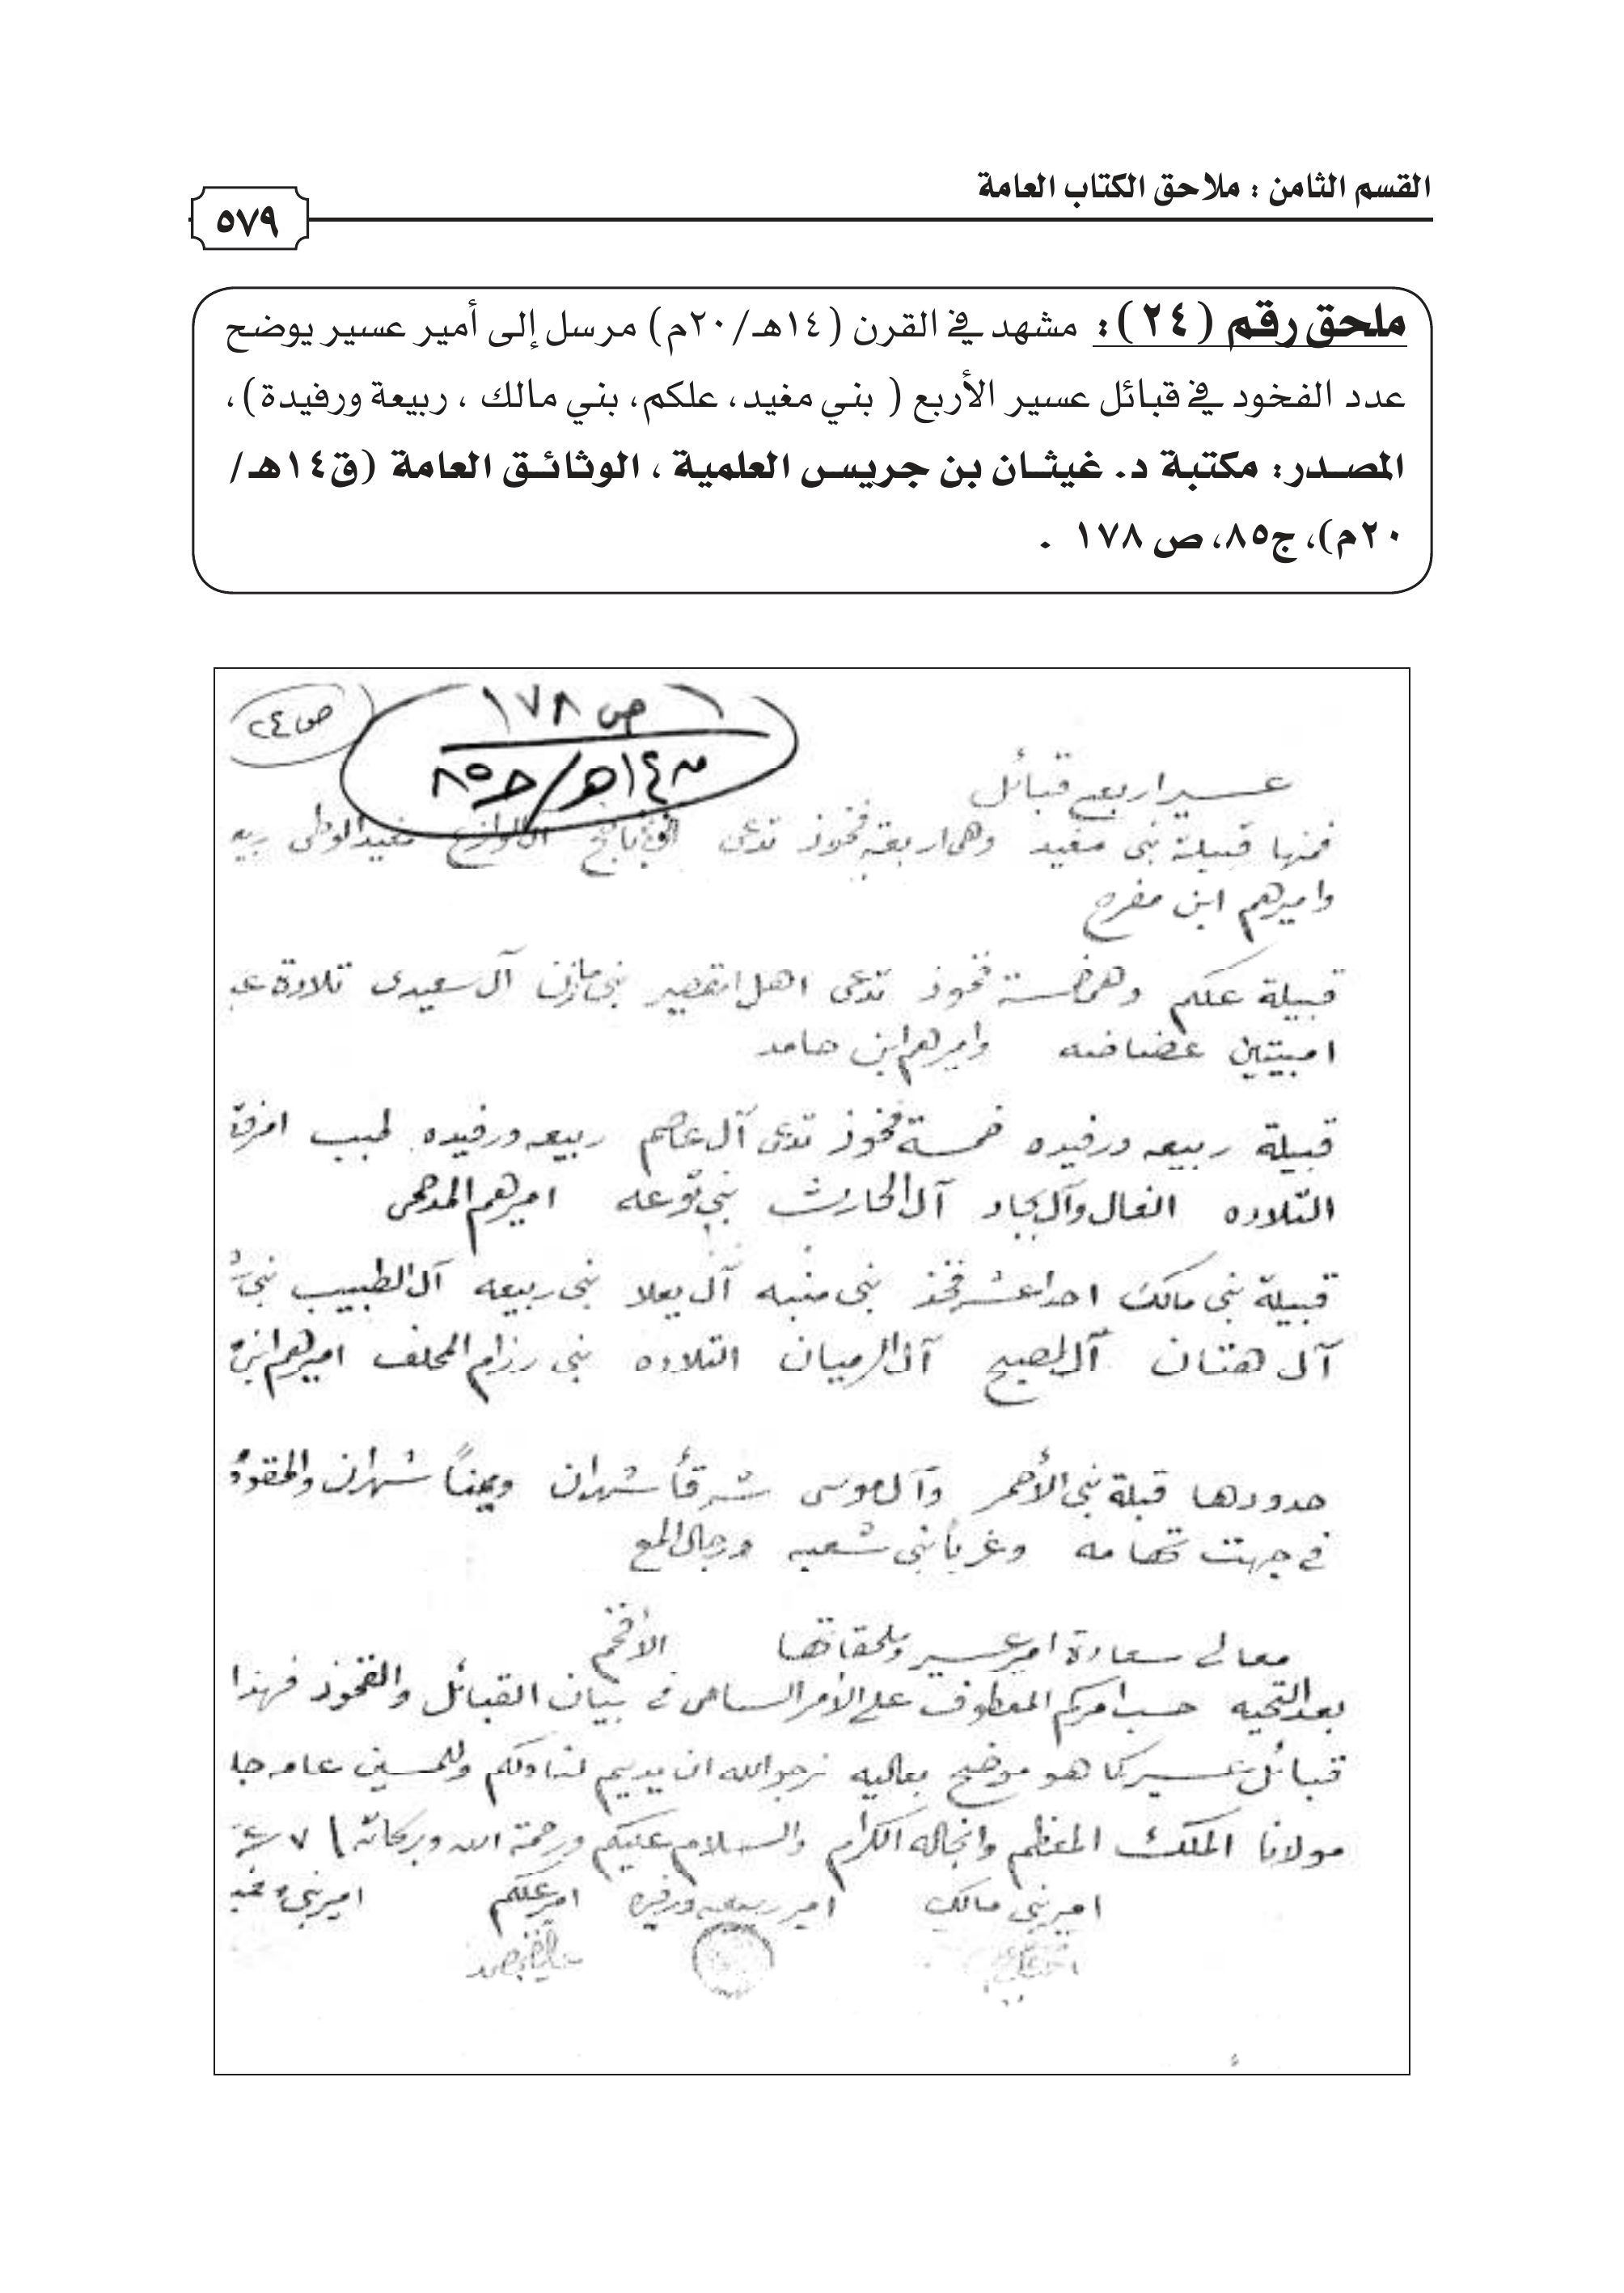 القسم الثامن : ملاحق الكتاب العامة
٥٧٩
ملحق رقم (٢٤): مشهد في القرن (١٤هـ/٢٠م) مرسل إلى أمير عسير يوضح
عدد الفخود في قبائل عسير الأربع ( بني مغيد، علكم، بني مالك ، ربيعة ورفيدة)،
المصدر: مكتبة د. غيثان بن جريس العلمية ، الوثائق العامة (ق١٤هـ/
٢٠م)، ج٨٥، ص ١٧٨ .
ص ١٧٨
ص ٢٤
ق ١٤هـ/ج٨٥
عسير اربع قبائل
فمنها قبيلة بني مغيد وهي اربعة فخوذ تدعى
واميرهم ابن مفرح
قبيلة علكم وهي خمسة فخوذ تدعى اهل القصير بني مازن آل سعيدى تلادة
عضاضه واميرهم ابن حامد
قبيلة ربيعه ورفيده خمسة فخوذ تدعى آل عاصم ربيعه ورفيده
التلاده آل الحارث بني توعه اميرهم المدحمي
قبيلة بني مالك احداعشر فخذ بني منبه آل يعلا بني ربيعه آل الطبيب بني
آل هتان آل المصبح آل الرميان التلاده بني رزام المحلف اميرهم
حدودها قبلة بني الأحمر وآل موسى شرقاً شهران ويمناً شهران
في جهت تهامه وغرباً بني شعبه ورجال المع
معالي سعادة امير عسير وملحقاتها الافخم
بعد التحيه حسب امركم المعطوف على الأمر السامي في بيان القبائل والفخوذ فهذا
قبائل عسير كما هو موضح بعاليه نرجو الله ان يديم لنا ولكم وللمسلمين عامه
مولانا الملك المعظم وانجاله الكرام والسلام عليكم ورحمة الله وبركاته
امير بني مالك امير ربيعه ورفيده امير علكم امير بني